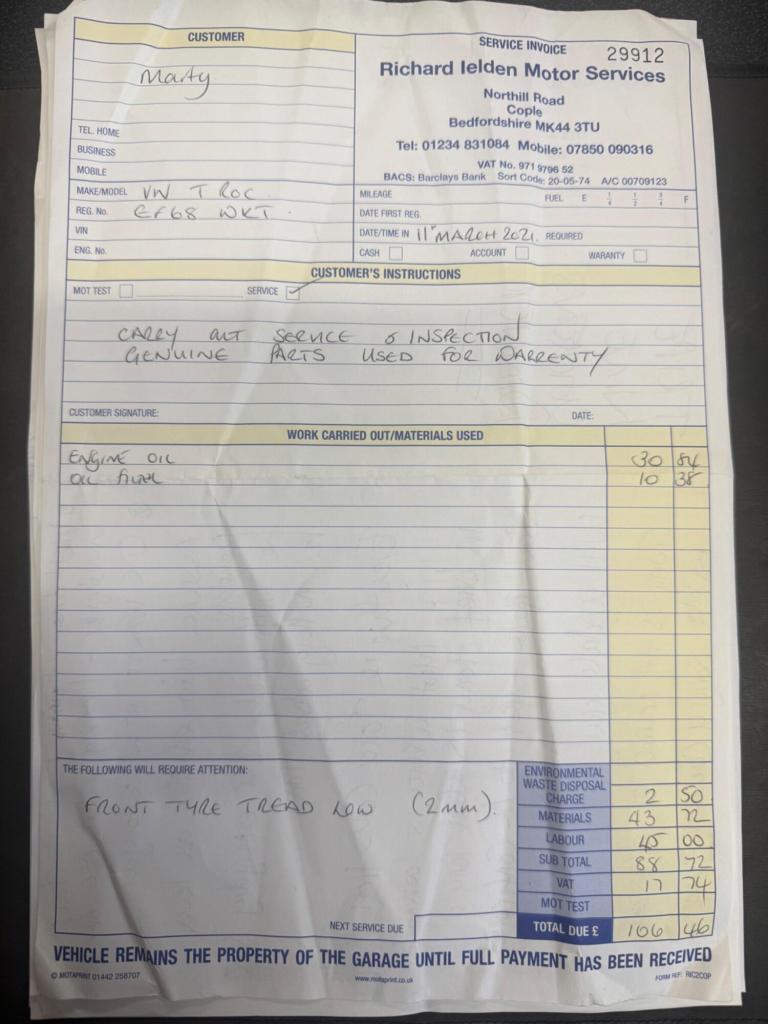 CUSTOMER
Marty
TEL. HOME
BUSINESS
MOBILE
MAKE/MODEL VW T ROC
REG. No. EF68 WKT
VIN
ENG. No.
SERVICE INVOICE 29912
Richard Ielden Motor Services
Northill Road
Cople
Bedfordshire MK44 3TU
Tel: 01234 831084 Mobile: 07850 090316
VAT No. 971 9796 52
BACS: Barclays Bank Sort Code: 20-05-74 A/C 00709123
MILEAGE FUEL E 1/4 1/2 3/4 F
DATE FIRST REG.
DATE/TIME IN 11" MARCH 2021. REQUIRED
CASH ACCOUNT WARANTY
CUSTOMER'S INSTRUCTIONS
MOT TEST SERVICE ✓
CARRY OUT SERVICE & INSPECTION
GENUINE PARTS USED FOR WARRENTY
CUSTOMER SIGNATURE: DATE:
WORK CARRIED OUT/MATERIALS USED
ENGINE OIL 30 84
OIL FILTER 10 38
THE FOLLOWING WILL REQUIRE ATTENTION:
FRONT TYRE TREAD LOW (2mm).
NEXT SERVICE DUE
ENVIRONMENTAL
WASTE DISPOSAL
CHARGE 2 50
MATERIALS 43 72
LABOUR 45 00
SUB TOTAL 88 72
VAT 17 74
MOT TEST
TOTAL DUE £ 106 46
VEHICLE REMAINS THE PROPERTY OF THE GARAGE UNTIL FULL PAYMENT HAS BEEN RECEIVED
© MOTAPRINT 01442 258707 www.motaprint.co.uk FORM REF: RIC2COP